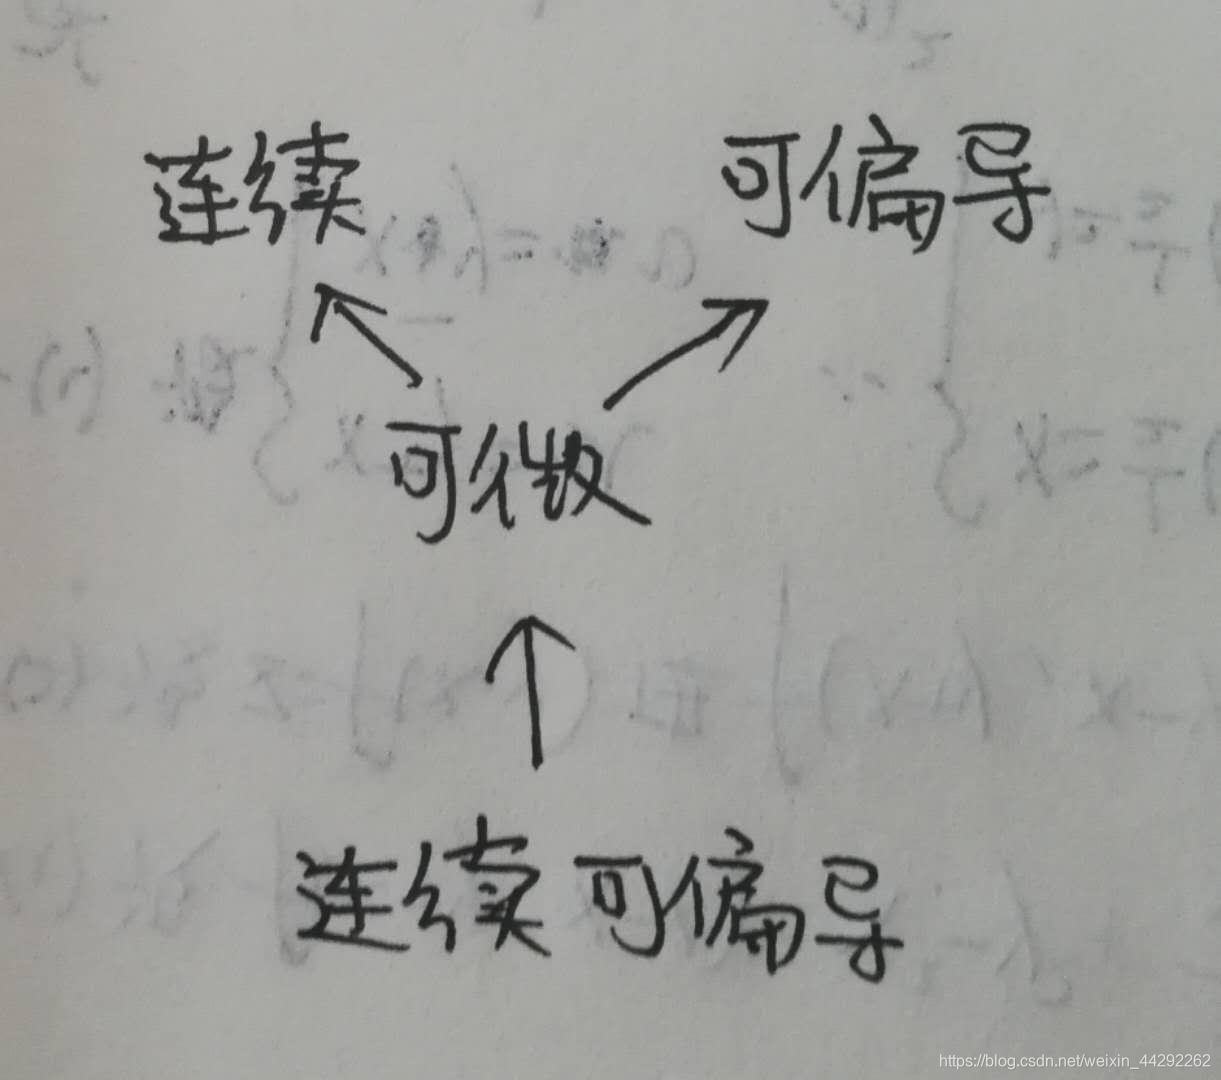 连续 可偏导
可微
连续可偏导
https://blog.csdn.net/weixin_44292262